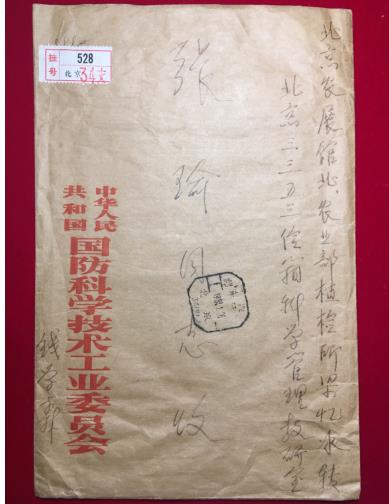 北京农展馆北,农业部植检所梁忆冰转
北京三三五三信箱科学管理教研室
张瑜同志收
中华人民
共和国
国防科学技术工业委员会
钱学森
挂号
528
北京34支